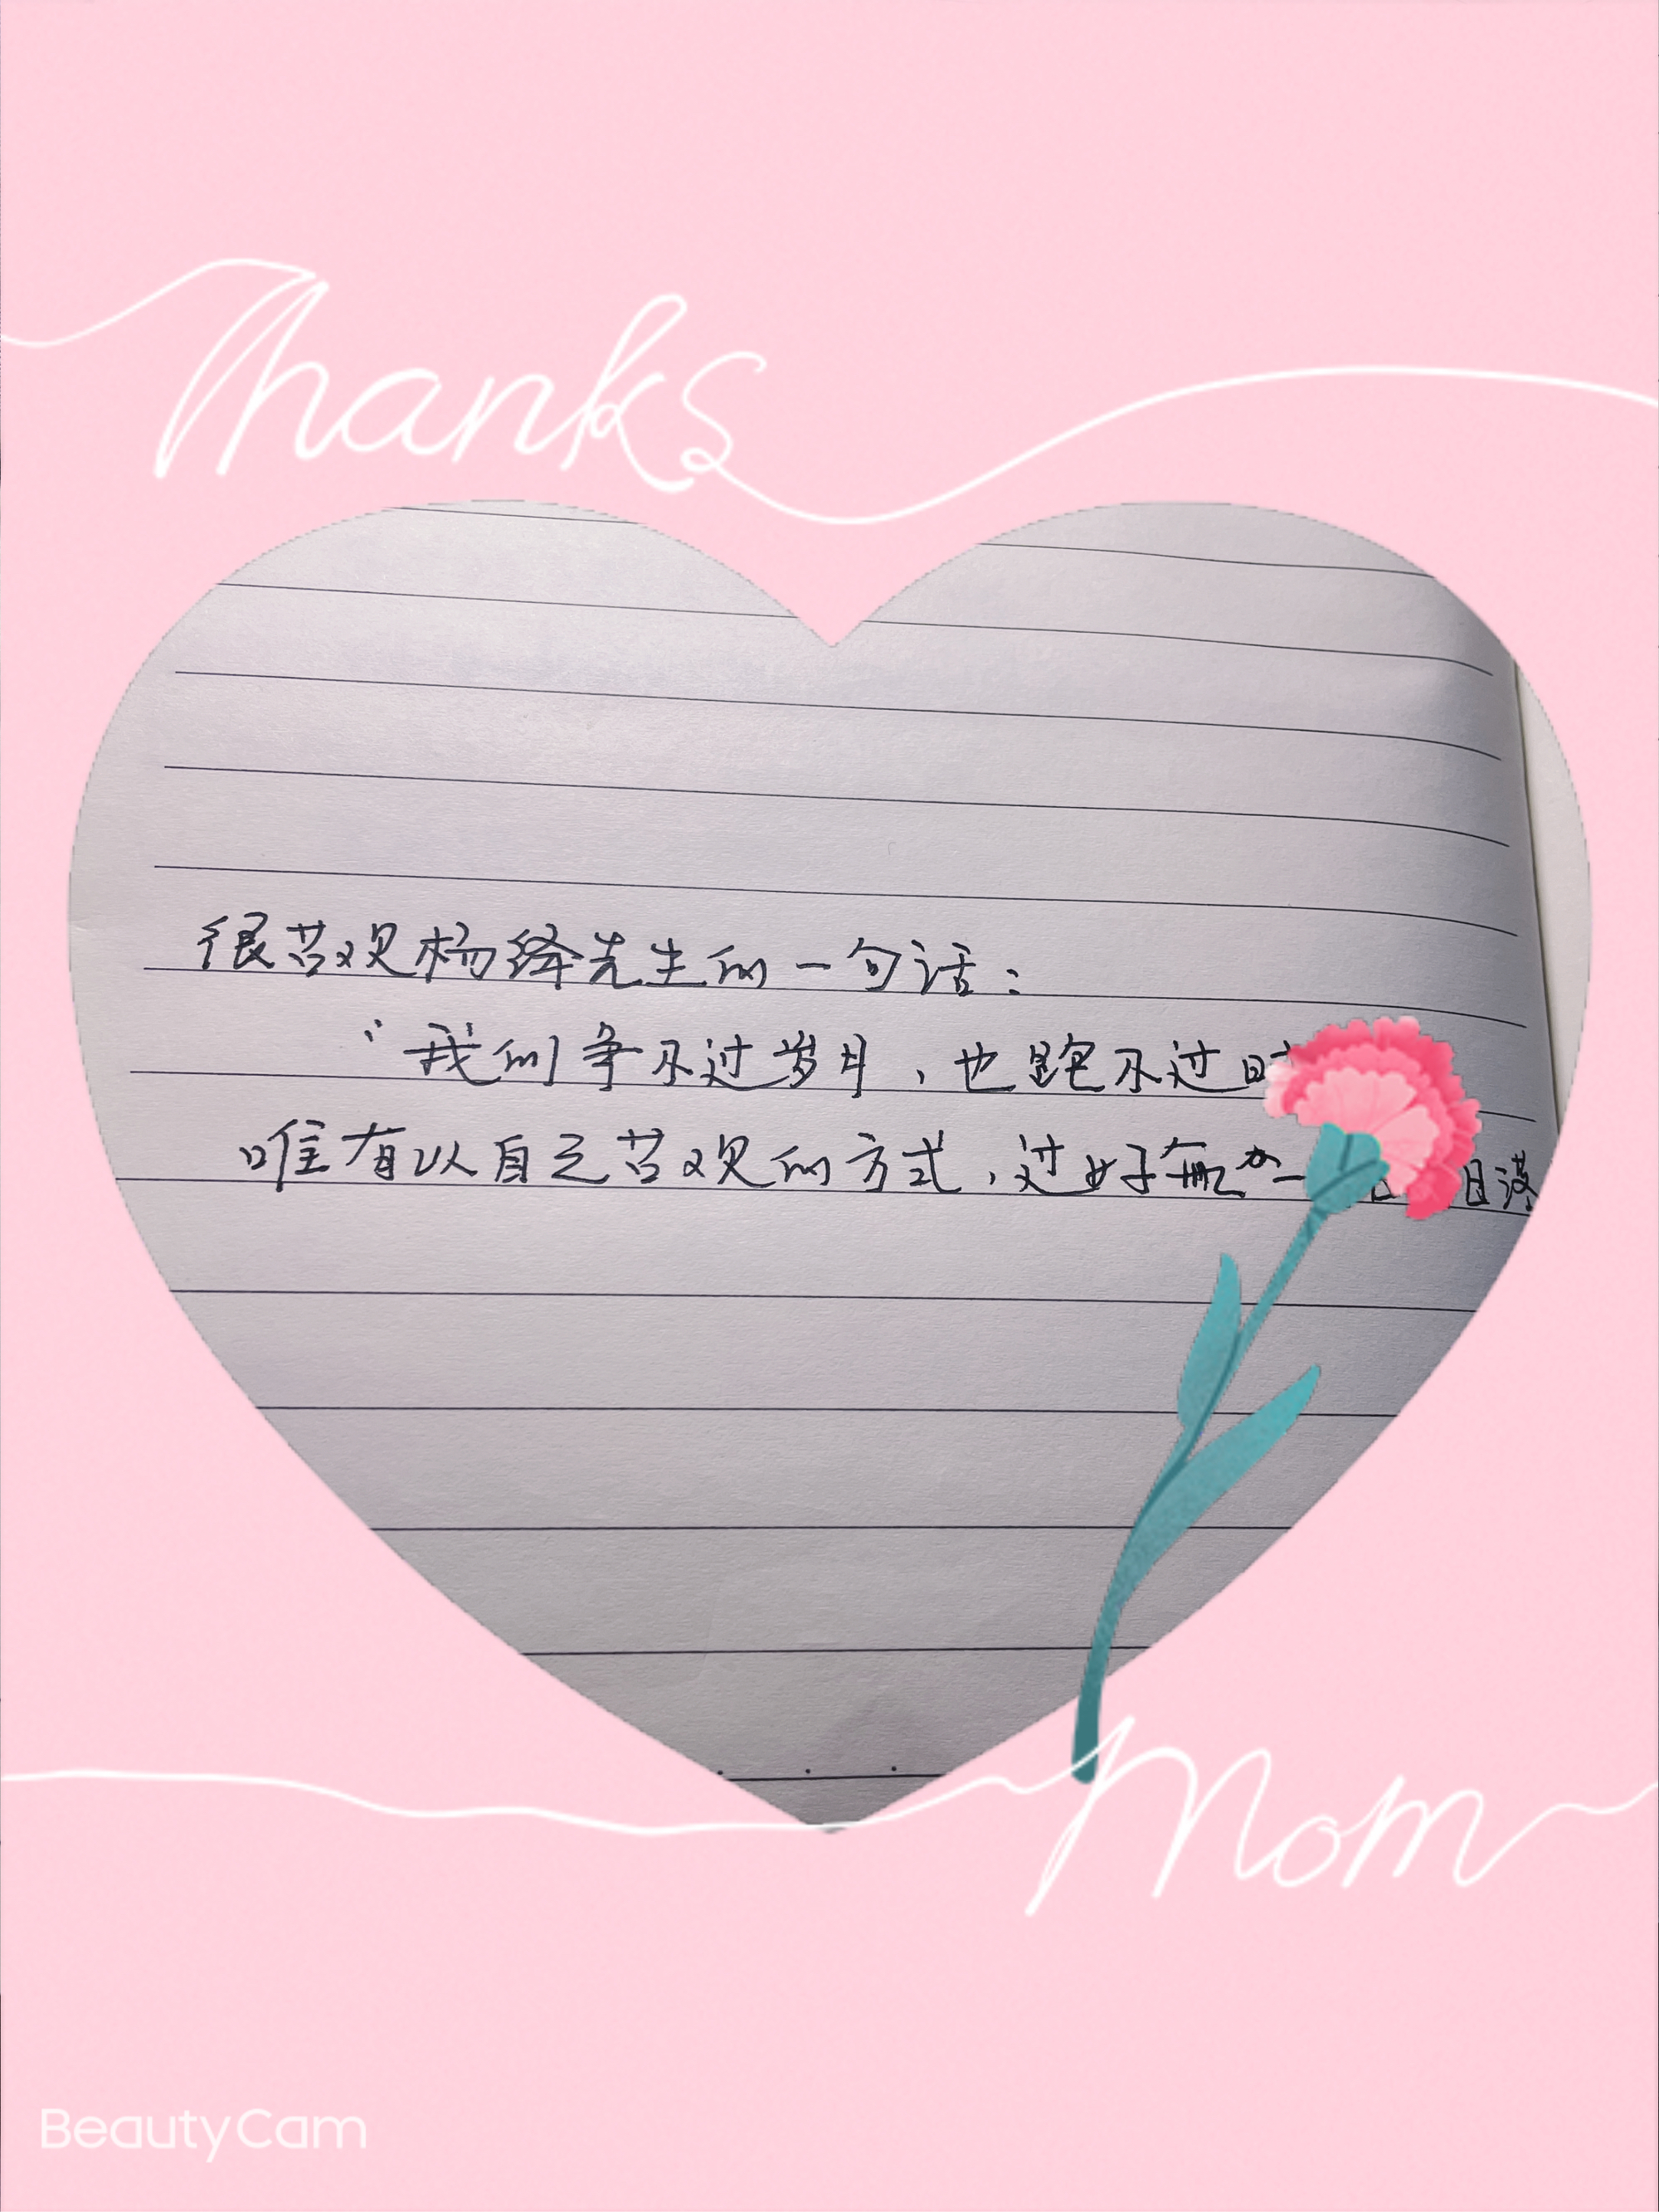 Thanks
很喜欢杨绛先生的一句话：
“我们争不过岁月，也跑不过
唯有以自己喜欢的方式，过好每个一
Mom
BeautyCam